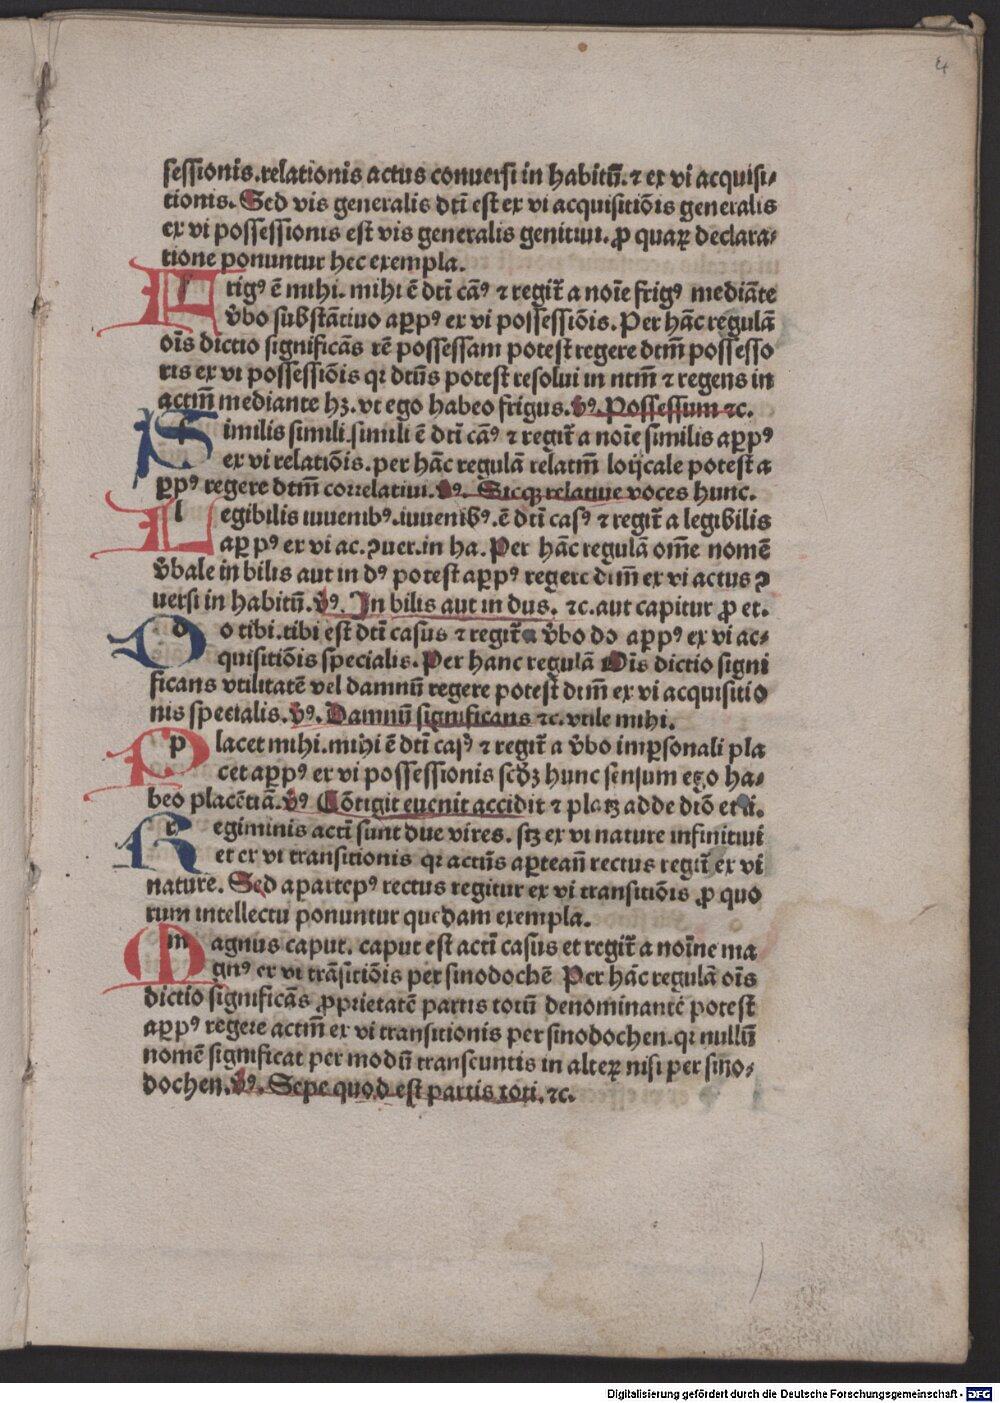 4
sessionis.relationis actus conuersi in habitū. ⁊ ex vi acquisi⸗
tionis. Sed vis generalis dt̄i est ex vi acquisitiōis generalis
ex vi possessionis est vis generalis genitiui. ꝓ quaꝝ declara⸗
tione ponuntur hec exempla.
f rigꝰ ē mihi. mihi ē dt̄i cāꝰ ⁊ regit̄ a noīe frigꝰ mediāte
v̄bo substātiuo aꝑpꝰ ex vi possessiōis. Per hāc regulā
oīs dictio significās rē possessam potest regere dtm̄ possesso
ris ex vi possessiōis qꝛ dtūs potest resolui in ntm̄ ⁊ regens in
actm̄ mediante hꝫ. vt ego habeo frigus. v̄ꝰ. Possessum ⁊c.
S imilis simili.simili ē dt̄i cāꝰ ⁊ regit̄ a noīe similis aꝑpꝰ
ex vi relatiōis.per hāc regulā relatm̄ loijcale potest a
ꝑpꝰ regere dtm̄ correlatiui. v̄ꝰ. Sicqꝫ relatiue voces hunc.
l egibilis iuuenibꝰ.iuuenibꝰ.ē dt̄i casꝰ ⁊ regit̄ a legibilis
aꝑpꝰ ex vi ac.ꝯuer.in ha. Per hāc regulā om̄e nomē
v̄bale in bilis aut in dꝰ potest aꝑpꝰ regere dtm̄ ex vi actus ꝯ
uersi in habitū. v̄ꝰ. In bilis aut in dus. ⁊c.aut capitur ꝓ et.
d o tibi.tibi est dt̄i casus ⁊ regit̄ a v̄bo do aꝑpꝰ ex vi ac⸗
quisitiōis specialis. Per hanc regulā Oīs dictio signi
ficans vtilitatē vel damnū regere potest dtm̄ ex vi acquisitio
nis specialis. v̄ꝰ. Damnū significans ⁊c. vtile mihi.
p lacet mihi.mihi ē dt̄i casꝰ ⁊ regit̄ a v̄bo imꝑsonali pla
cet aꝑpꝰ ex vi possessionis scd̄ꝫ hunc sensum ego ha⸗
beo placētiā. v̄ꝰ Cōtigit euenit accidit ⁊ placꝫ adde diō et
r egiminis acti sunt due vires. sꝫ ex vi nature infinitiui
et ex vi transitionis qꝛ actūs aꝑteanī rectus regit̄ ex vi
nature. Sed aꝑartepꝰ rectus regitur ex vi transitiōis ꝓ quo
rum intellectu ponuntur quedam exempla.
m agnus caput. caput est acti casus et regit̄ a noīne ma
gnꝰ ex vi trāsitiōis per sinodochē Per hāc regulā oīs
dictio significās ꝓprietatē partis totū denominantē potest
aꝑpꝰ regere actm̄ ex vi transitionis per sinodochen.qꝛ nullū
nomē significat per modū transeuntis in alteꝝ nisi per sīno⸗
dochen. v̄ꝰ. Sepe quod est partis toti. ⁊c.
Digitalisierung gefördert durch die Deutsche Forschungsgemeinschaft - DFG